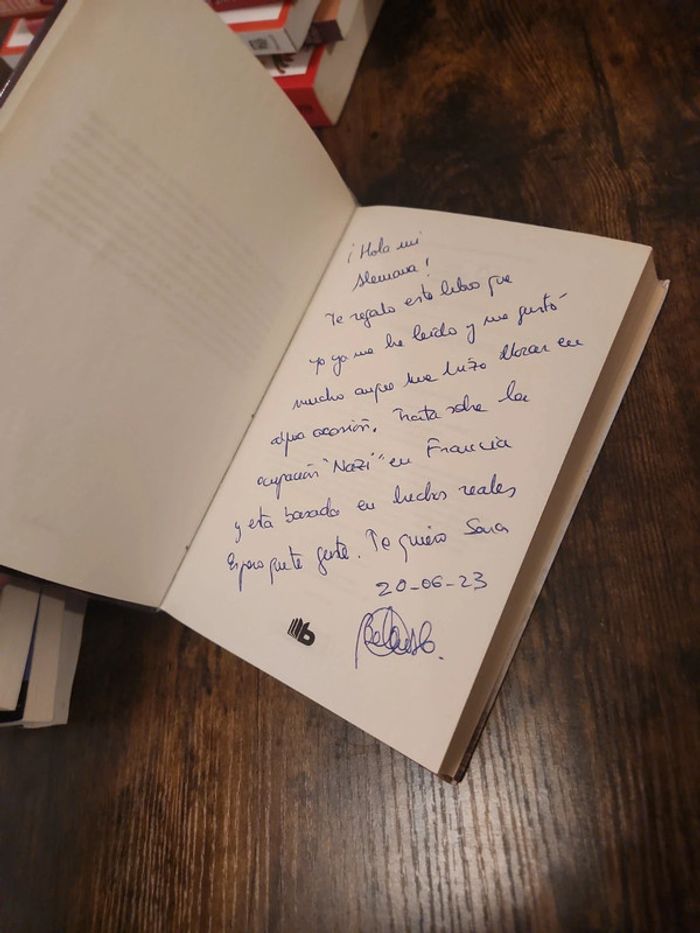 ¡Hola mi
Alemana!
Te regalo este libro que
yo ya me he leído y me gustó
mucho aunque me hizo llorar en
alguna ocasión. Trata sobre la
ocupación "Nazi" en Francia
y está basado en hechos reales
Espero que te guste. Te quiero Sara
20-06-23
b